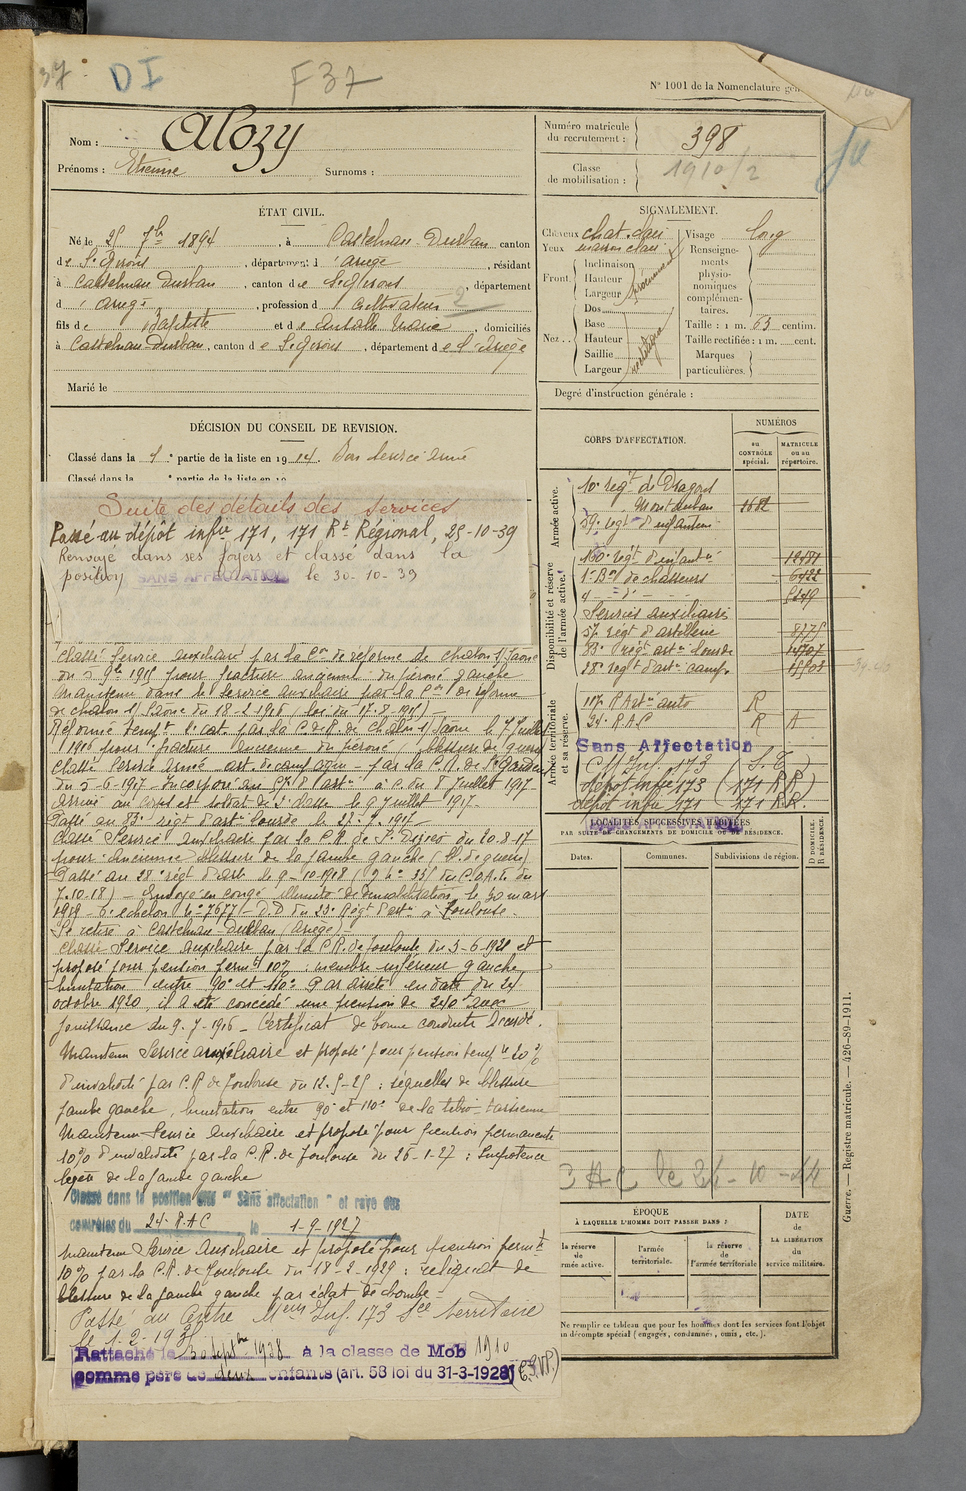 37 DI F37
N° 1001 de la Nomenclature gén
Nom : Alozy
Prénoms : Etienne Surnoms :
Numéro matricule du recrutement : 398
Classe de mobilisation : 1910/2
ÉTAT CIVIL.
Né le 25 7bre 1894, à Castelnau-Durban canton
de St Girons, département d'ariège, résidant
à Castelnau Durban, canton de St Girons, département
d'ariège, profession d cultivateur 2
fils de Baptiste et de Marie, domiciliés
à Castelnau-Durban, canton de St Girons, département de l'ariège
Marié le
SIGNALEMENT.
Cheveux chat. clair
Yeux marron clair
Front.
Inclinaison
Hauteur
Largeur
Nez..
Dos
Base
Hauteur
Saillie
Largeur
rectiligne
Visage long
Renseignements physionomiques complémentaires.
Taille : 1 m. 63 centim.
Taille rectifiée : 1 m. cent.
Marques particulières.
Degré d'instruction générale :
DÉCISION DU CONSEIL DE REVISION.
Classé dans la 1e partie de la liste en 1914. Bon Service armé
Classé dans la e partie de la liste en 19
Suite des détails des services
Passé au dépôt infie 171, 171 Rt Régional, 25-10-39
Renvoyé dans ses foyers et classé dans la
position SANS AFFECTATION le 30-10-39
Classé Service auxiliaire par la Con de réforme de Chalon s/Saône
du 5 9bre 1915 pour fracture ancienne du péroné gauche
Maintenu dans le service auxiliaire par la Con de réforme
de Chalon s/Saône du 18-2-1916 (loi du 17-8-1915)
Réformé tempt 2e cat. par la C.R. de Chalon s/Saône le 7 Juillet
1916 pour fracture ancienne du péroné (blessure de guerre
Classé Service armé art. de campagne par la C.R. de St Gaudens
du 5-6-1917. Incorporé au 57e Rt d'artie à c. du 8 Juillet 1917
Arrivé au corps et soldat de 2e classe le 9 Juillet 1917
Passé au 83e régt d'artie lourde le
Classé Service auxiliaire par la C.R. de St du 20.8.17
pour ancienne blessure de la jambe gauche (bl. de guerre)
Passé au 28e régt d'artie le 9-10-1918 du
7.10.18) Envoyé en congé illimité de démobilisation le 30 mars
1919 6e échelon No 7677 D.D du 23e Régt d'artie à Toulouse.
Se retire à Castelnau Durban (Ariège)
Classé Service auxiliaire par la C.R. de Toulouse du 5-6-1920 et
proposé pour pension permte 10% : membre inférieur gauche,
limitation entre 90° et 110° Par arrêté en date du 24
octobre 1920, il a été concédé une pension de 240f avec
jouissance du 9-7-1916 Certificat de bonne conduite Accordé.
Maintenu Service auxiliaire et proposé pour pension tempre 20%
d'invalidité par C.R. de Toulouse du 12-5-25 : séquelles de blessure
jambe gauche, limitation entre 90° et 110° de la tibio-tarsienne
Maintenu Service auxiliaire et proposé pour pension permanente
10% d'invalidité par la C.R. de Toulouse du 26-1-27 : Impotence
légère de la jambe gauche
Classé dans la position dite "Sans affectation" et rayé des
contrôles du 24e R.A.C le 1-9-1927
Maintenu Service Auxiliaire et proposé pour pension permte
10% par la C.R. de Toulouse du 18-2-1929 : reliquat de
blessure de la jambe gauche par éclat de bombe
Passé au Centre Mon Inf. 173 Sce territoire
le 1-2-193
Rattaché le 30 septbre 1938 à la classe de Mob 1910
comme père de deux enfants (art. 58 loi du 31-3-1928)
CORPS D'AFFECTATION.
NUMÉROS
au CONTRÔLE spécial.
MATRICULE ou au répertoire.
Armée active.
10e régt de Dragons
Montauban 1682
59e régt d'infanterie
Disponibilité et réserve de l'armée active.
160e régt d'infantie
1er Bon de chasseurs 6422
4 - d° -
Services auxiliaires
57e régt d'artillerie 8775
83e régt artie lourde 14707
28e régt d'artie campe
Armée territoriale et sa réserve.
117e R Artie auto R
24e R.A.C R A
Sans Affectation
CM Inf. 173 (S.T)
dépôt infie 173 (171 R.R)
dépôt infie 171 171 R.R.
SANS AFFECTATION
LOCALITÉS SUCCESSIVES HABITÉES
PAR SUITE DE CHANGEMENTS DE DOMICILE OU DE RÉSIDENCE.
Dates. Communes. Subdivisions de région. D DOMICILE. R RÉSIDENCE.
CAC le 24-10-44
ÉPOQUE
À LAQUELLE L'HOMME DOIT PASSER DANS :
DATE de LA LIBÉRATION du service militaire.
la réserve de l'armée active.
l'armée territoriale.
la réserve de l'armée territoriale
Ne remplir ce tableau que pour les hommes dont les services font l'objet
un décompte spécial (engagés, condamnés, omis, etc.).
Guerre. — Registre matricule. — 426-89-1911.